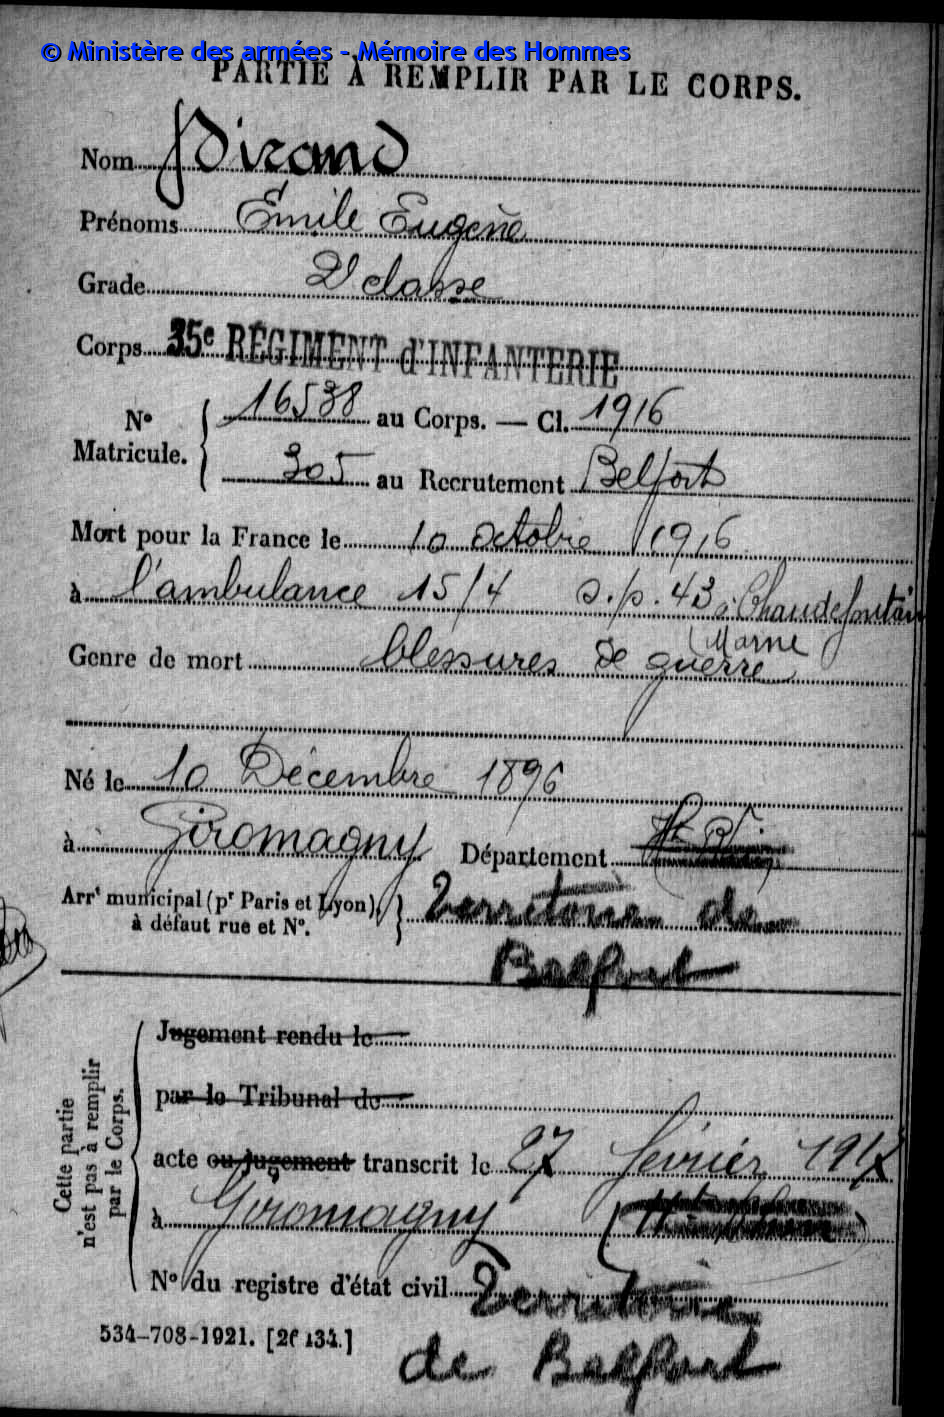 © Ministère des armées - Mémoire des Hommes
PARTIE À REMPLIR PAR LE CORPS.
Nom
Prénoms Émile Eugène
Grade 2e classe
Corps 35e RÉGIMENT d'INFANTERIE
No Matricule. 16538 au Corps. — Cl. 1916
305 au Recrutement Belfort
Mort pour la France le 10 Octobre 1916
à l'ambulance 15/4 s.p. 43 à Chaudefontaine
(Marne)
Genre de mort blessures de guerre
Né le 10 Décembre 1896
à Giromagny Département Ht Rhin
Arrt municipal (pr Paris et Lyon),
à défaut rue et No.
Territoire de
Belfort
Jugement rendu le
par le Tribunal de
acte ou jugement transcrit le 27 février 1917
à Giromagny
No du registre d'état civil Territoire
de Belfort
534-708-1921. [26434.]
Cette partie
n'est pas à remplir
par le Corps.